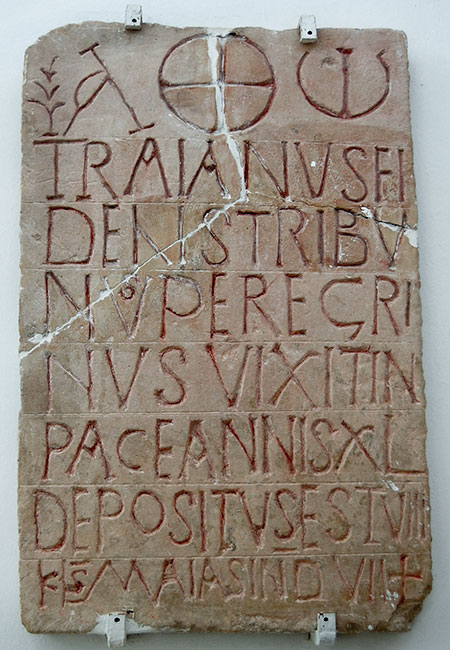 A ⊕ ω
TRAIANVS FI
DENIS TRIBV
NVº PEREGRI
NVS VIXIT IN
PACE ANNIS XL
DEPOSITVS EST VIIII
KS MAIAS IND VII +